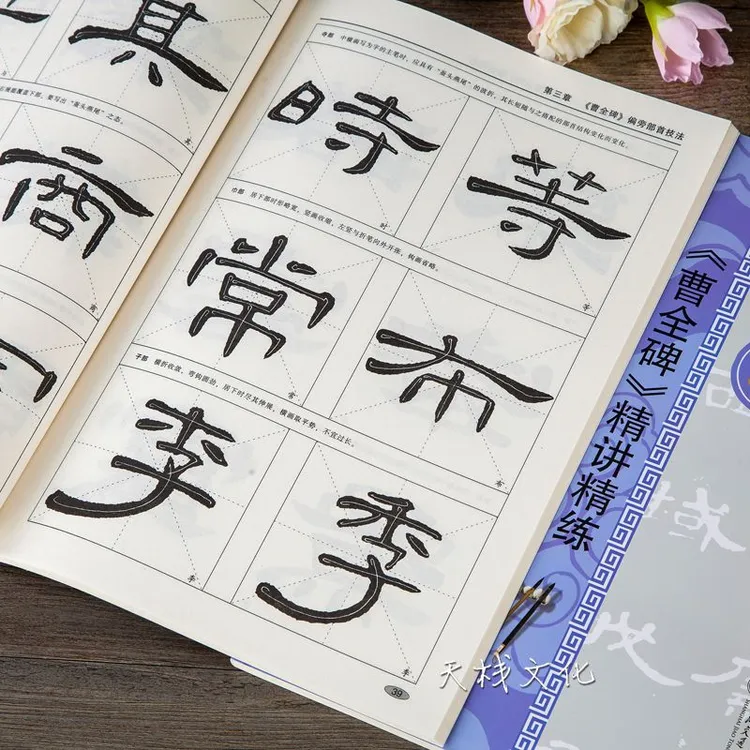 其
其
覆盖下部,要写出“蚕头燕尾”之态。
商
商
第三章 《曹全碑》偏旁部首技法
寺部 中横画写为字的主笔时,应具有“蚕头燕尾”的波折,其长短随与之搭配的部首结构变化而变化。
時 等
时 等
巾部 居下部时形略宽,竖画收缩,左竖与折笔向外开张,钩画省略。
常 布
常 布
子部 横折收敛,弯钩圆劲,居下时尽其伸展,横画取平势,不宜过长。
李 季
李 季
39
《曹全碑》精讲精练
域
天栈文化